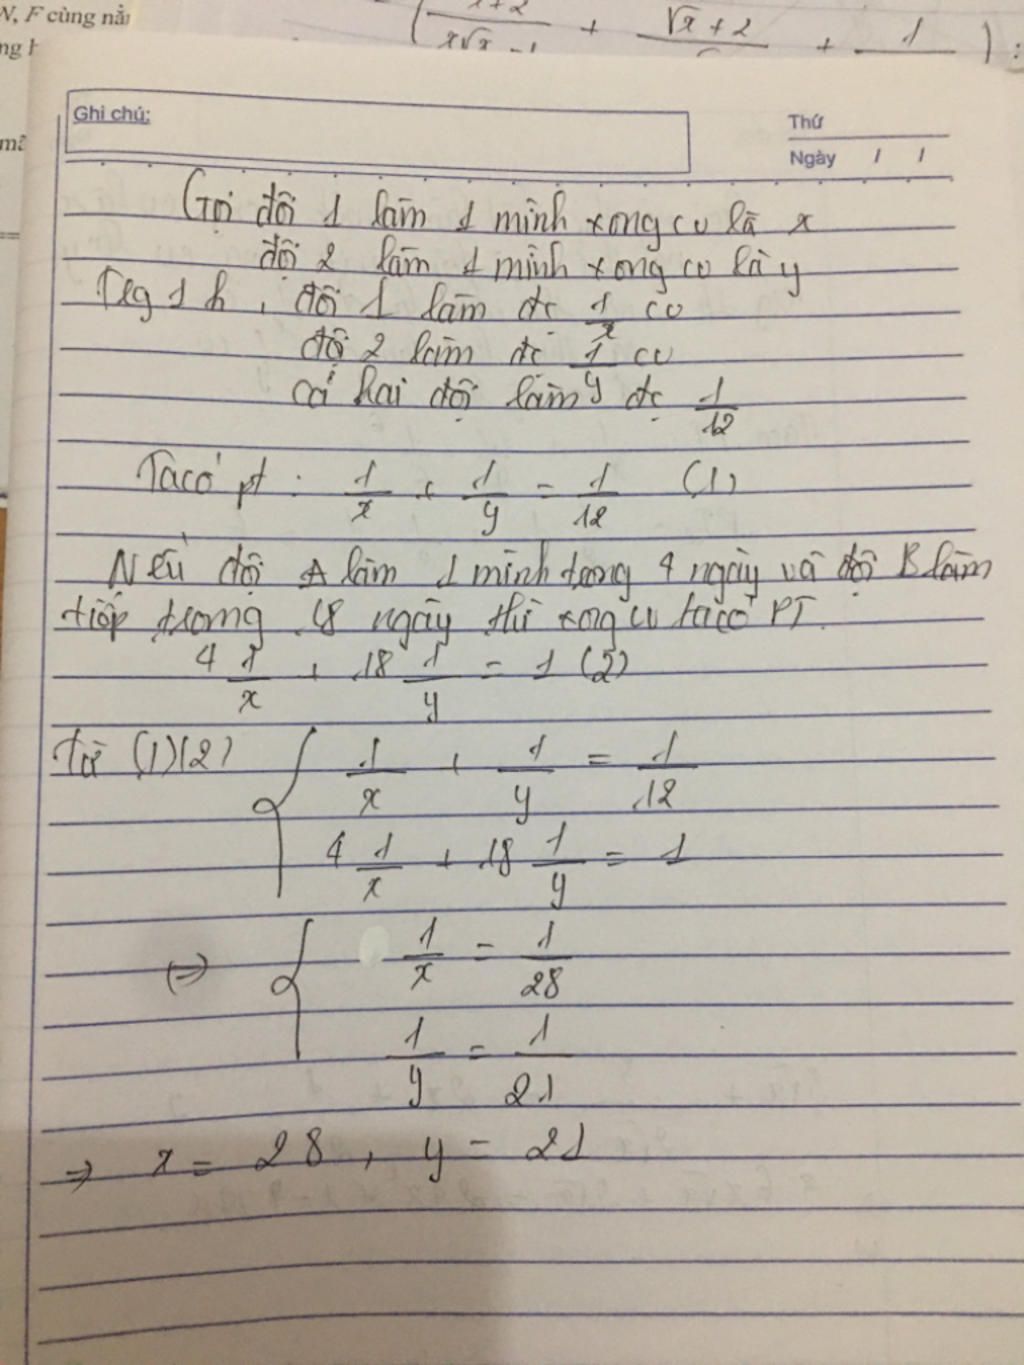 N, F cùng nằ
x+2 / x√x - 1 + √x + 2 + 1 ) :
ng h
Ghi chú:
Thứ
mã
Ngày / /
Gọi đội 1 làm 1 mình xong cv là x
đội 2 làm 1 mình xong cv là y
Trg 1 h, đội 1 làm đc 1/x cv
đội 2 làm đc 1/y cv
cả hai đội làm đc 1/12
Ta có pt : 1/x + 1/y = 1/12 (1)
Nếu đội A làm 1 mình trong 4 ngày và đội B làm
tiếp trong 18 ngày thì xong cv ta có PT.
4 1/x + 18 1/y = 1 (2)
Từ (1)(2) { 1/x + 1/y = 1/12
4 1/x + 18 1/y = 1
(=) { 1/x = 1/28
1/y = 1/21
=> x = 28, y = 21